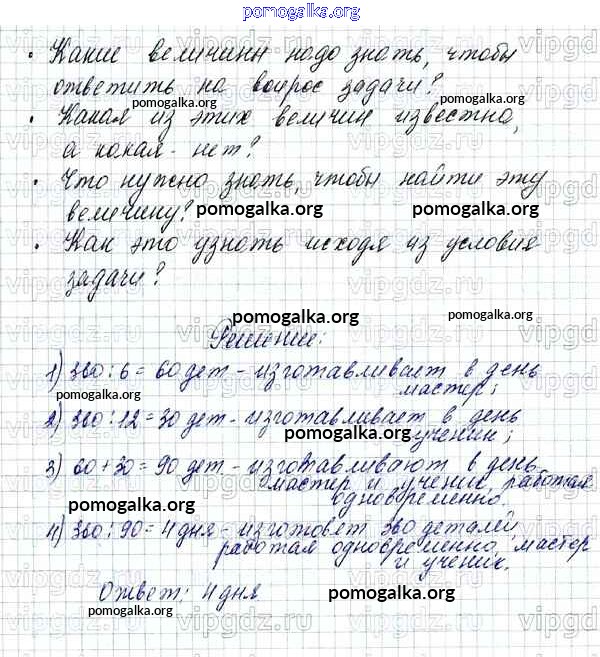 pomogalka.org
• Какие величины надо знать, чтобы
ответить на вопрос задачи?
pomogalka.org pomogalka.org
• Какая из этих величин известна,
а какая - нет?
• Что нужно знать, чтобы найти эту
величину? pomogalka.org pomogalka.org
• Как это узнать исходя из условия
задачи?
pomogalka.org
Решение:
1) 360 : 6 = 60 дет - изготавливает в день
мастер;
2) 360 : 12 = 30 дет - изготавливает в день
pomogalka.org ученик;
3) 60 + 30 = 90 дет - изготавливают в день
мастер и ученик, работая
pomogalka.org одновременно.
4) 360 : 90 = 4 дня - изготовят 360 деталей,
работая одновременно, мастер
и ученик.
Ответ: 4 дня
pomogalka.org pomogalka.org
vipgdz.com